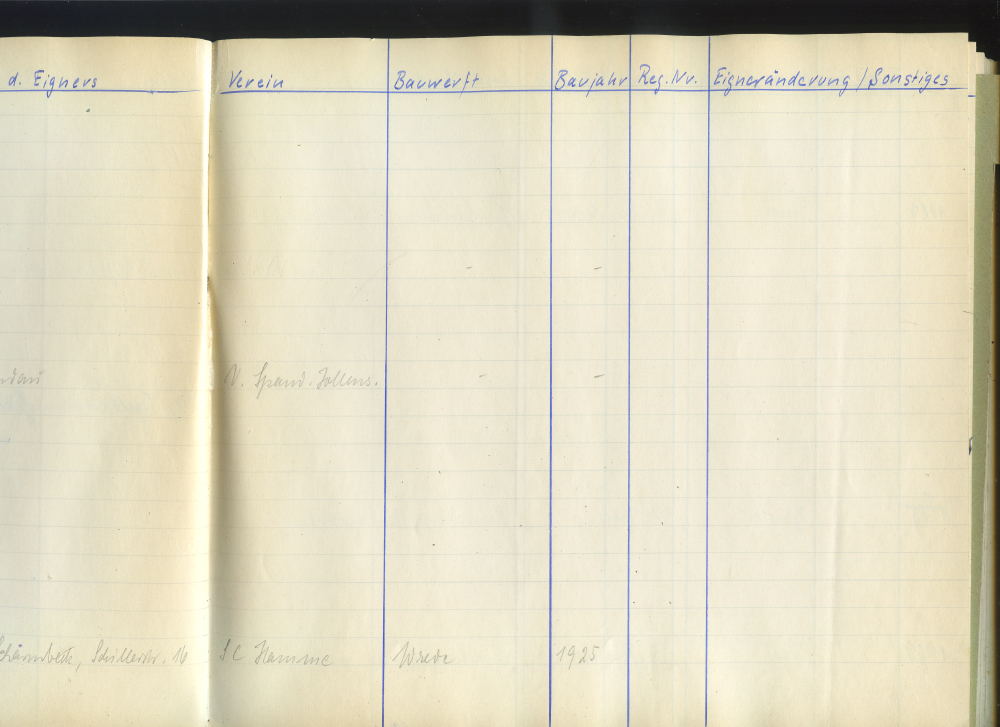 d. Eigners Verein Bauwerft Baujahr Reg. Nr. Eigneränderung / Sonstiges
- -
V. Spand. Jollens. - -
Schillerstr. 16 SC Hamme Wrede 1925